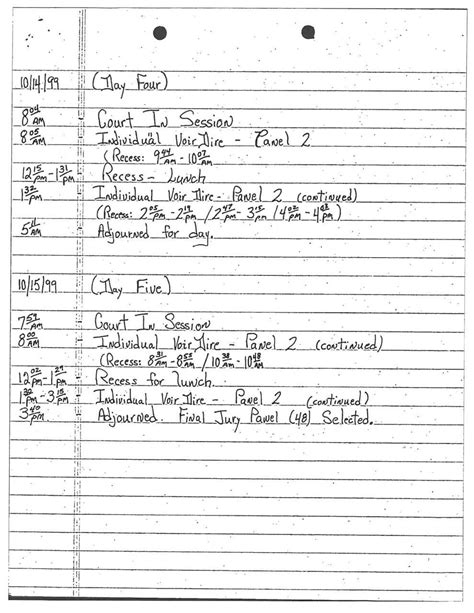 10/14/99 (Day Four)
8:04 AM - Court In Session
8:05 AM - Individual Voir Dire - Panel 2
(Recess: 9:44 AM - 10:07 AM)
12:15 PM - 1:31 PM - Recess - Lunch
1:32 PM - Individual Voir Dire - Panel 2 (continued)
(Recess: 2:05 PM - 2:19 PM / 2:47 PM - 3:15 PM / 4:02 PM - 4:03 PM)
5:11 AM - Adjourned for day.
10/15/99 (Day Five)
7:59 AM - Court In Session
8:00 AM - Individual Voir Dire - Panel 2 (continued)
(Recess: 8:31 AM - 8:53 AM / 10:38 AM - 10:48 AM)
12:02 PM - 1:29 PM - Recess for lunch.
1:32 PM - 3:15 PM - Individual Voir Dire - Panel 2 (continued)
3:40 PM - Adjourned. Final Jury Panel (48) Selected.